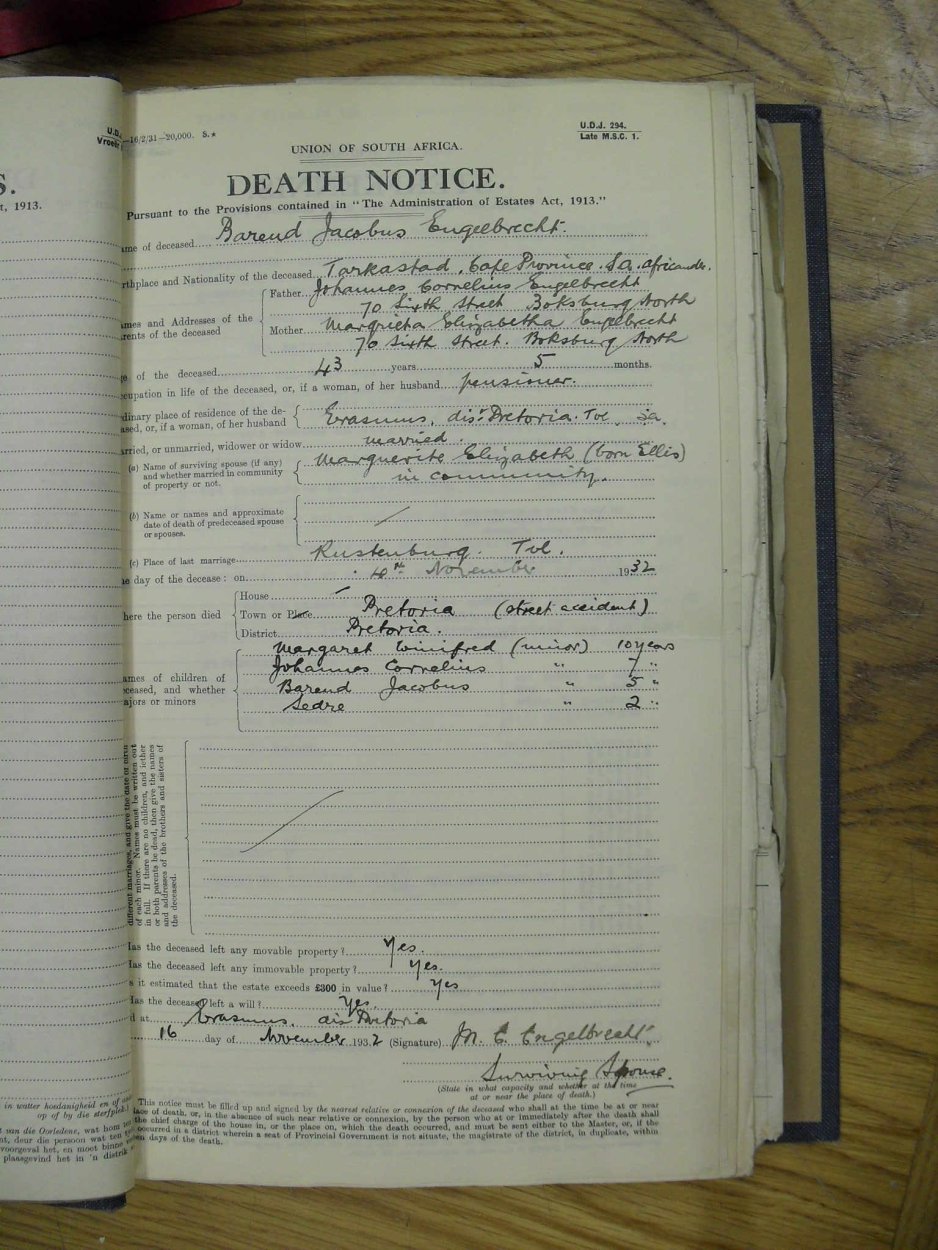 S.
t, 1913.
U.D.J.
Vroeër
—16/2/31—20,000. S.★
U.D.J. 294.
Late M.S.C. 1.
UNION OF SOUTH AFRICA.
DEATH NOTICE.
Pursuant to the Provisions contained in "The Administration of Estates Act, 1913."
ame of deceased Barend Jacobus Engelbrecht.
rthplace and Nationality of the deceased Tarkastad, Cape Province. S.a. africander.
ames and Addresses of the
rents of the deceased
Father Johannes Cornelius Engelbrecht
70 Sixth Street Boksburg North
Mother Margrieta Elizabetha Engelbrecht
70 Sixth Street. Boksburg North
e of the deceased 43 years 5 months.
cupation in life of the deceased, or, if a woman, of her husband pensioner.
dinary place of residence of the de-
ased, or, if a woman, of her husband
Erasmus, dist Pretoria. Tvl S.a.
arried, or unmarried, widower or widow married.
(a) Name of surviving spouse (if any)
and whether married in community
of property or not.
Marguerite Elizabeth (born Ellis)
in community.
(b) Name or names and approximate
date of death of predeceased spouse
or spouses.
(c) Place of last marriage Rustenburg. Tvl.
e day of the decease: on 4th November 1932
here the person died
House
Town or Place Pretoria (street accident)
District Pretoria.
ames of children of
eceased, and whether
ajors or minors
Margaret Winifred (minor) 10 years
Johannes Cornelius " 7 "
Barend Jacobus " 5 "
Sedre " 2 "
different marriages, and give the date of birth
of each minor. Names must be written out
in full. If there are no children, and either
or both parents be dead, then give the names
and addresses of the brothers and sisters of
the deceased.
Has the deceased left any movable property? Yes.
Has the deceased left any immovable property? Yes.
s it estimated that the estate exceeds £300 in value? Yes
Has the deceased left a will? Yes.
d at Erasmus, dis Pretoria
16 day of November 1932 (Signature) M. E. Engelbrecht.
Surviving Spouse.
(State in what capacity and whether at the time
at or near the place of death.)
This notice must be filled up and signed by the nearest relative or connexion of the deceased who shall at the time be at or near
lace of death, or, in the absence of such near relative or connexion, by the person who at or immediately after the death shall
the chief charge of the house in, or the place on, which the death occurred, and must be sent either to the Master, or, if the
occurred in a district wherein a seat of Provincial Government is not situate, the magistrate of the district, in duplicate, within
en days of the death.
in watter hoedanigheid en of
op of by die sterfplek
van die Oorledene, wat hom
nt, deur die persoon wat ten
voorgeval het, en moet binne
plaasgevind het in 'n distrik